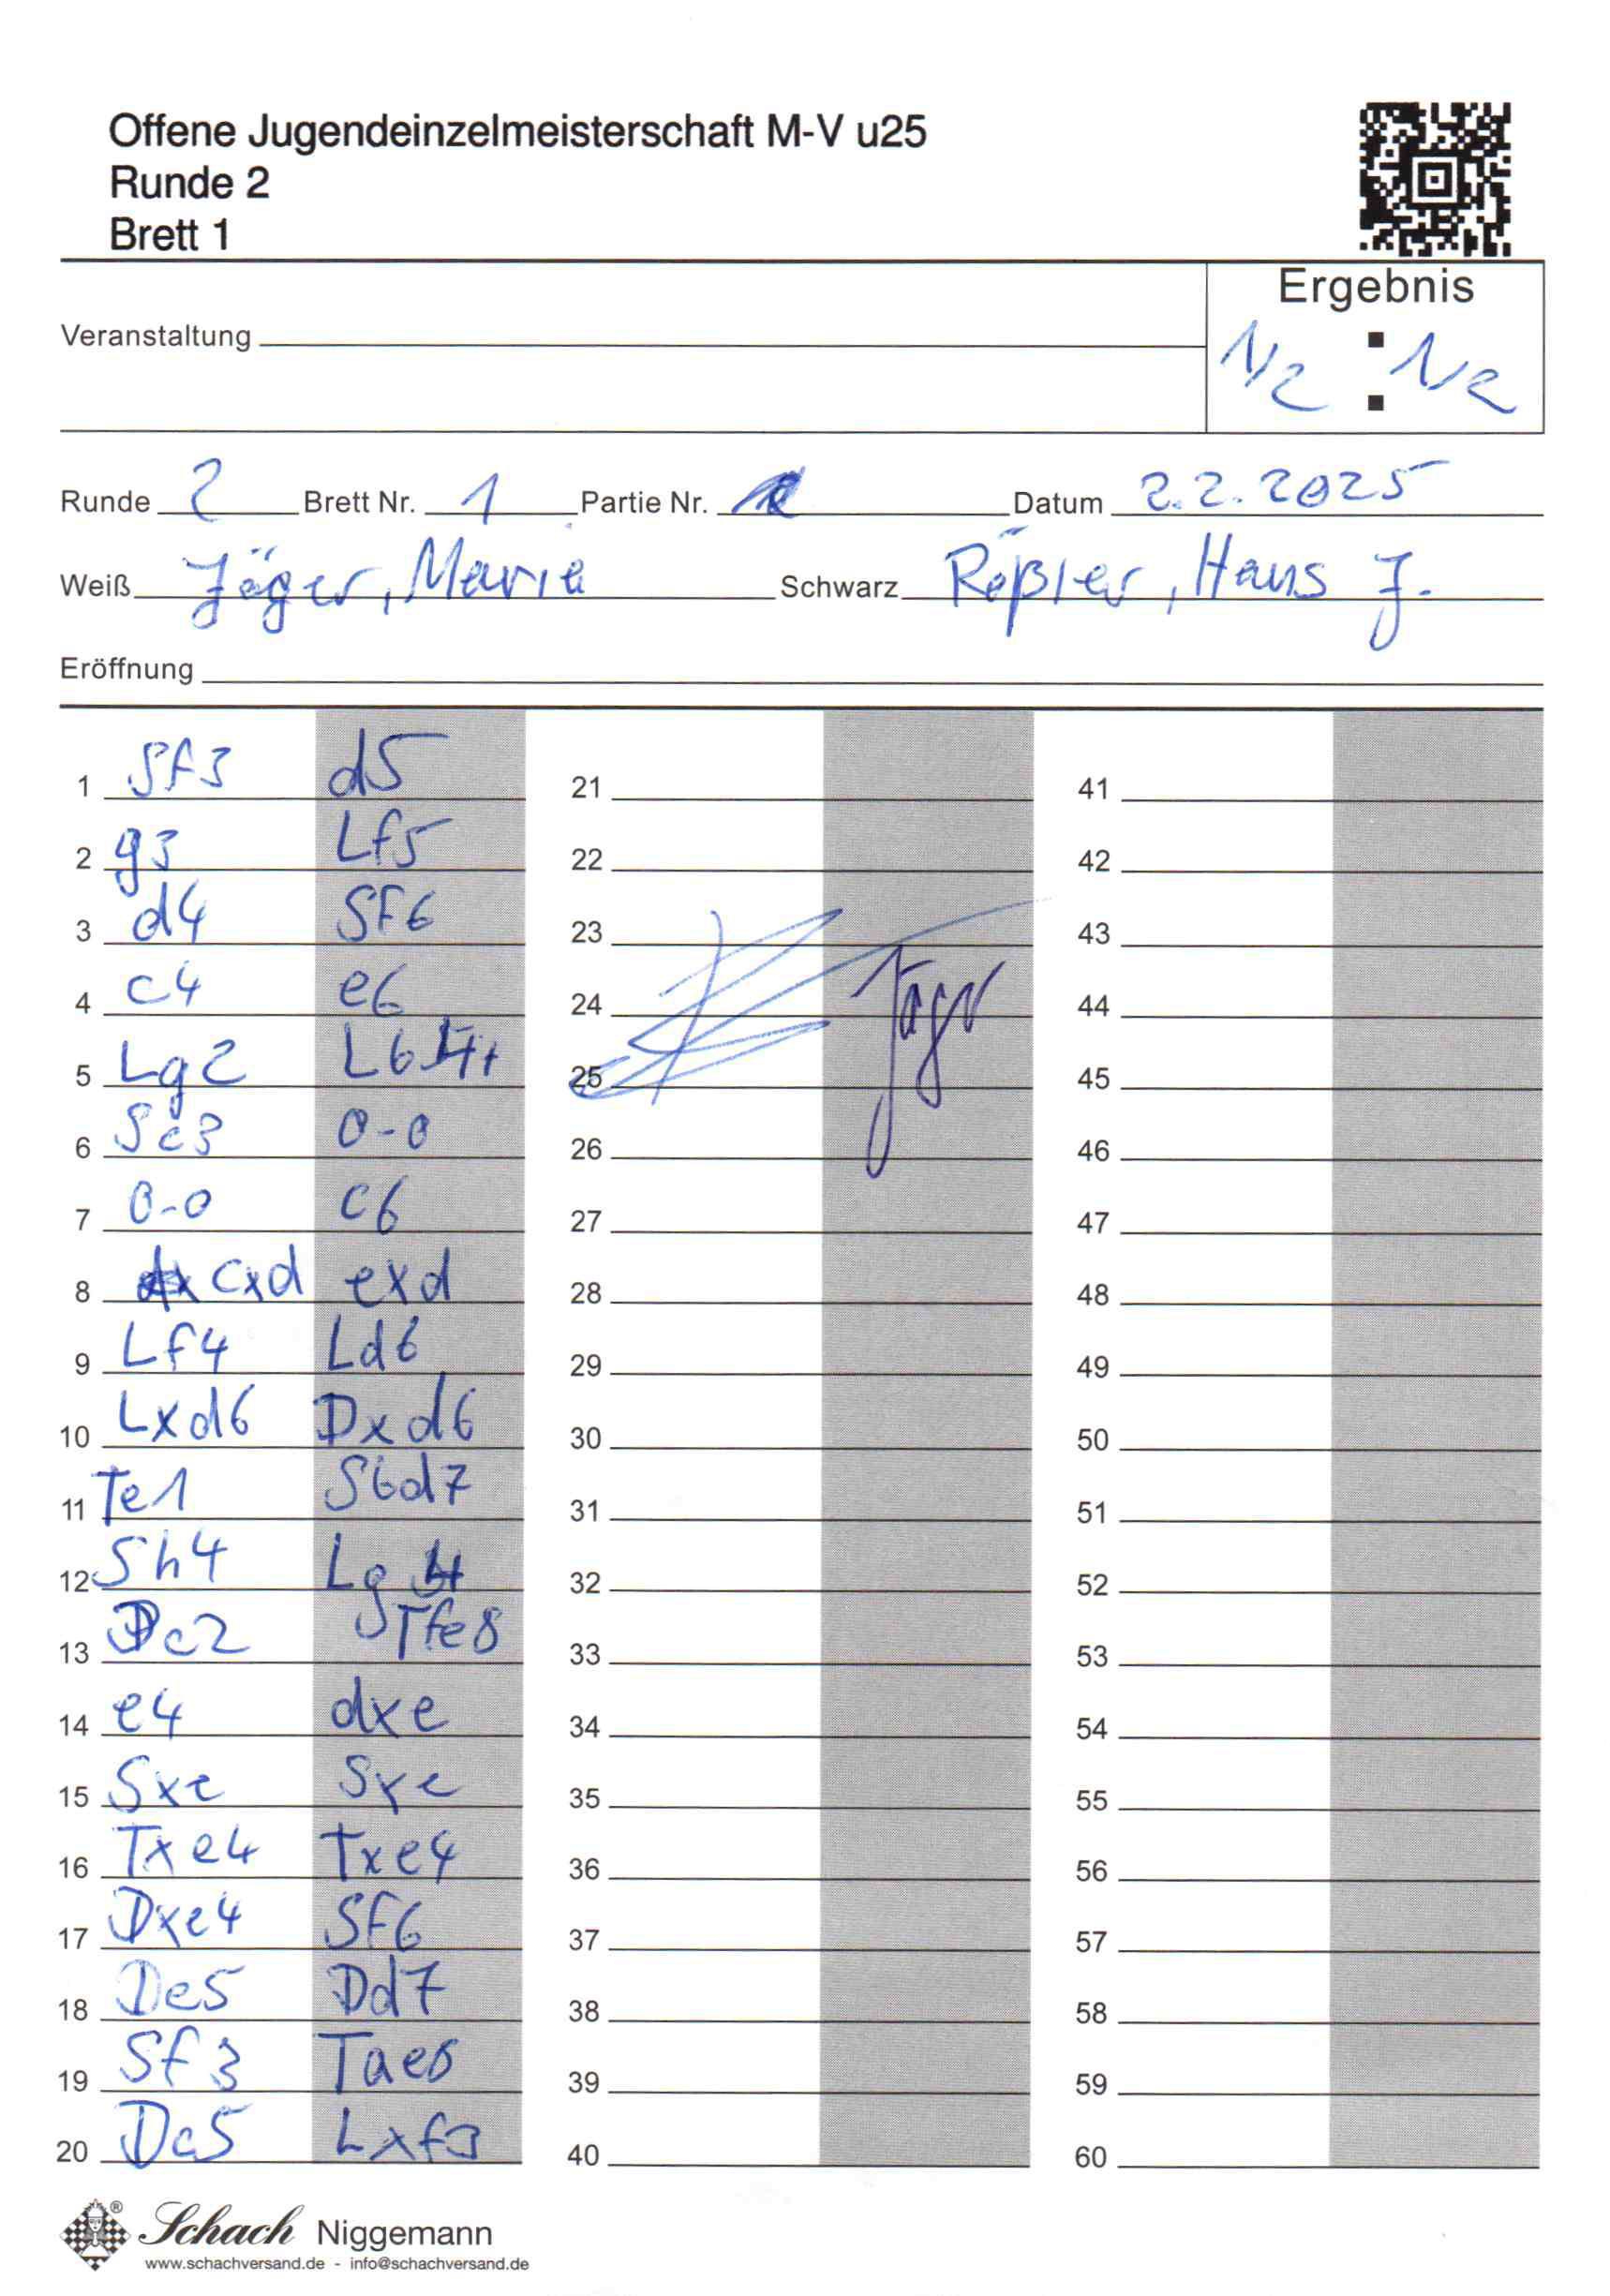 Offene Jugendeinzelmeisterschaft M-V u25
Runde 2
Brett 1
Ergebnis
Veranstaltung
1/2 : 1/2
Runde 2 Brett Nr. 1 Partie Nr. Datum 2.2.2025
Weiß Jäger, Marie Schwarz Rößler, Hans J.
Eröffnung
1 Sf3 d5 21 41
2 g3 Lf5 22 42
3 d4 Sf6 23 43
4 c4 e6 24 Jäger 44
5 Lg2 Lb4+ 25 45
6 Sc3 0-0 26 46
7 0-0 c6 27 47
8 cxd exd 28 48
9 Lf4 Ld6 29 49
10 Lxd6 Dxd6 30 50
11 Te1 Sbd7 31 51
12 Sh4 Lg4 32 52
13 Dc2 Tfe8 33 53
14 e4 dxe 34 54
15 Sxe Sxe 35 55
16 Txe4 Txe4 36 56
17 Dxe4 Sf6 37 57
18 De5 Dd7 38 58
19 Sf3 Tae8 39 59
20 Da5 Lxf3 40 60
® Schach Niggemann
www.schachversand.de - info@schachversand.de